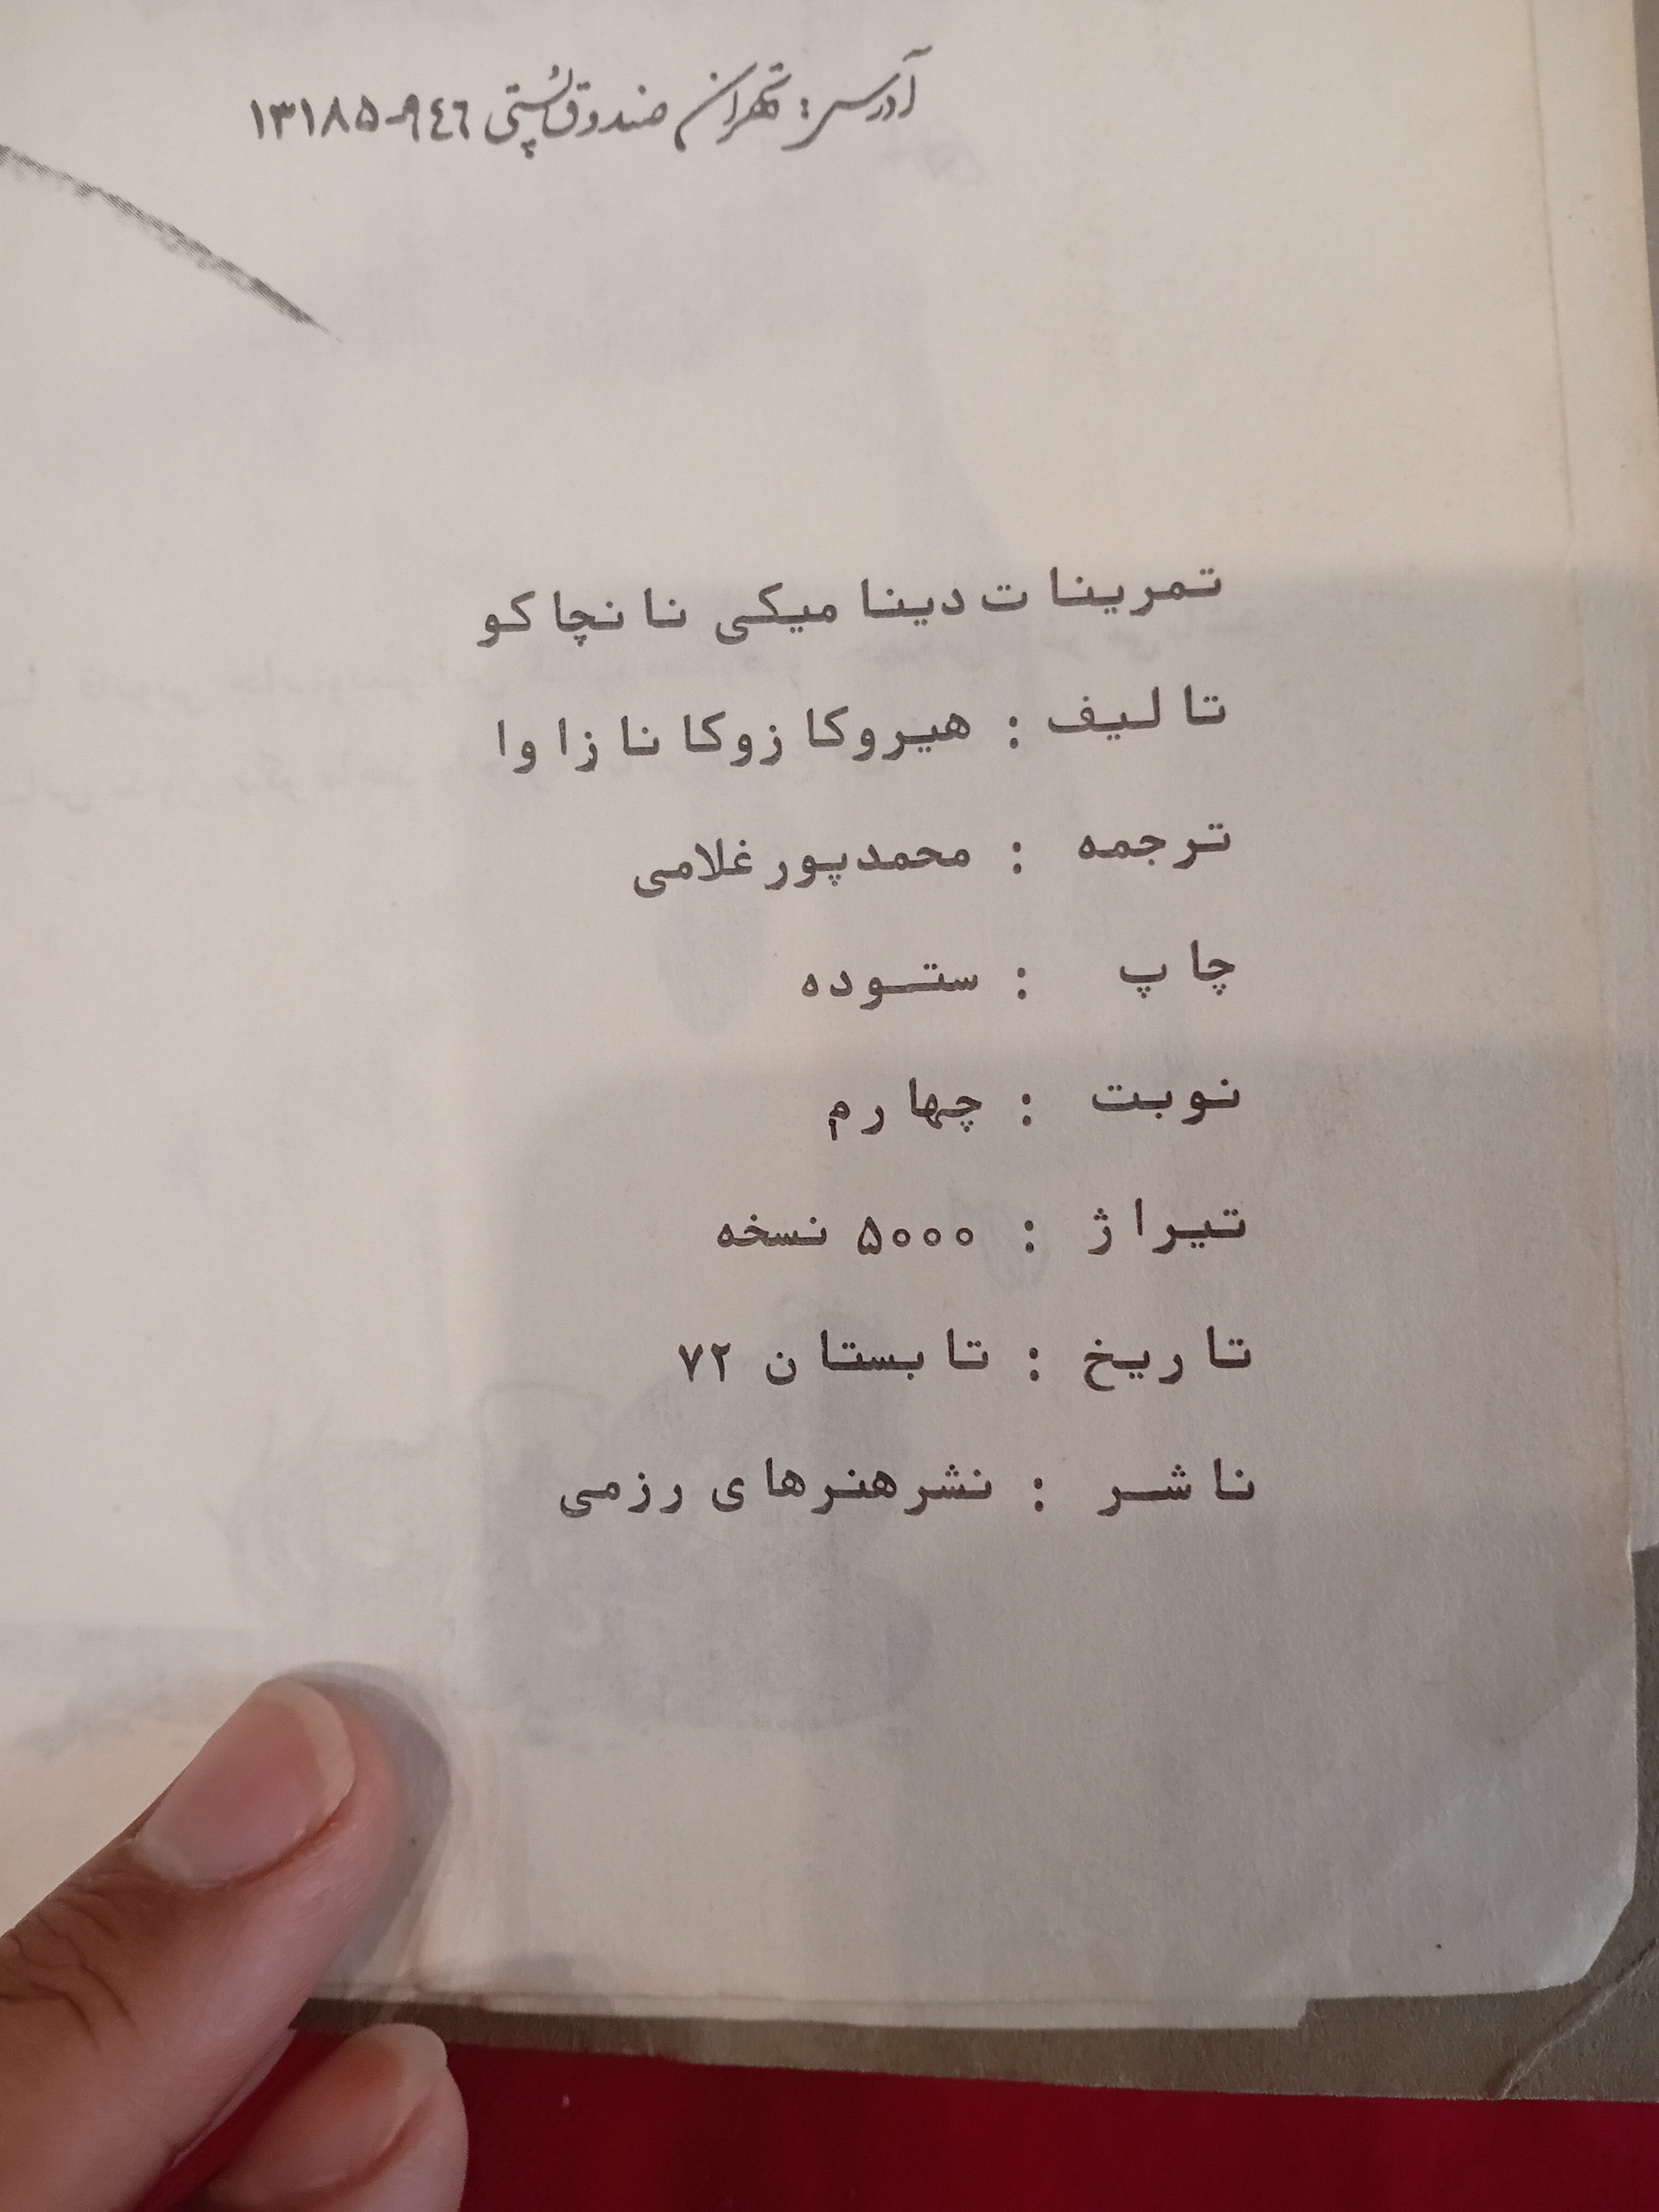 آدرس: تهران صندوق پستی ۹٤٦-۱۳۱۸۵
تمرینات دینامیکی نانچاکو
تالیف : هیروکازوکانازاوا
ترجمه : محمدپورغلامی
چاپ : ستوده
نوبت : چهارم
تیراژ : ۵۰۰۰ نسخه
تاریخ : تابستان ۷۲
ناشر : نشرهنرهای رزمی